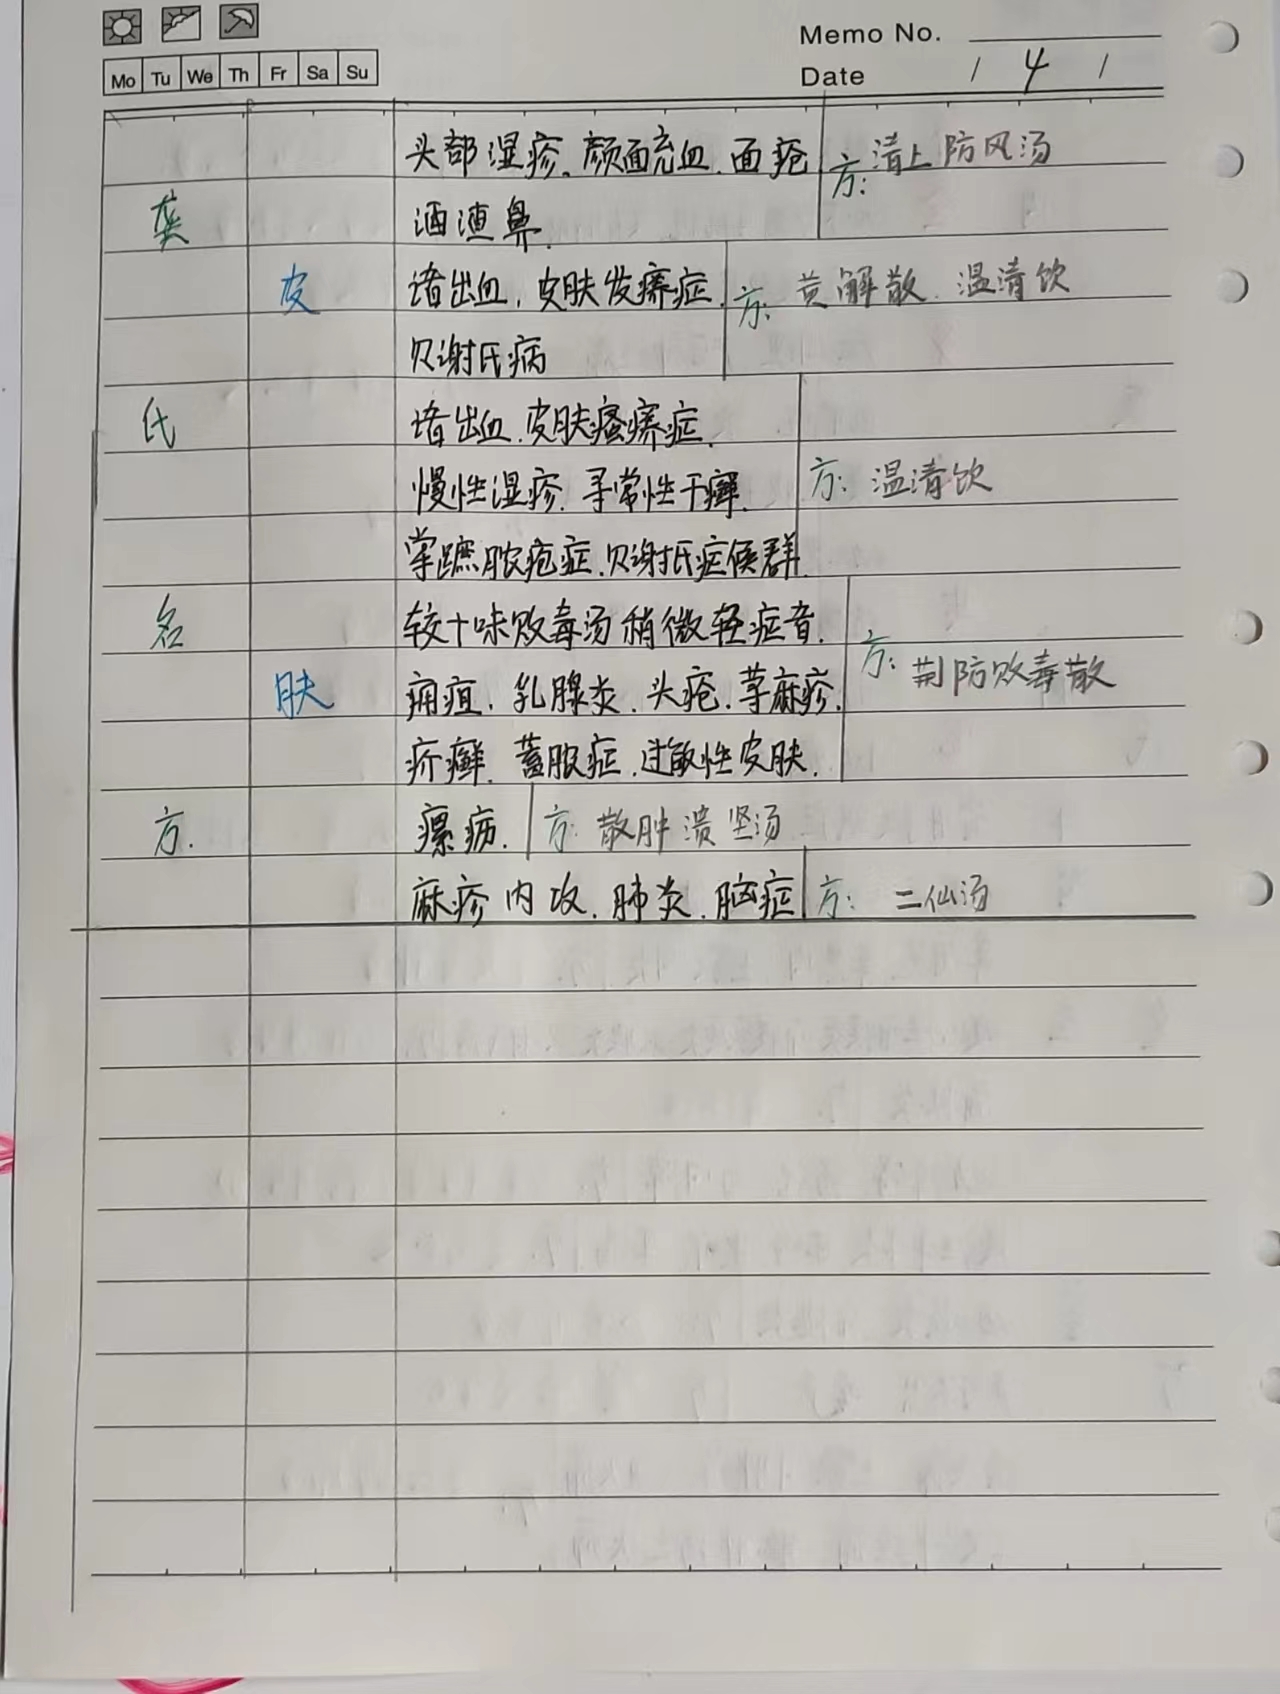 Memo No.
Mo Tu We Th Fr Sa Su
Date / 4 /
头部湿疹、颜面充血.面疮 方:清上防风汤
龚 酒渣鼻.
皮 诸出血,皮肤发痒症. 方: 黄解散.温清饮
贝谢氏病
氏 诸出血.皮肤瘙痒症.
慢性湿疹.寻常性干癣. 方: 温清饮
掌蹠脓疱症.贝谢氏症候群.
名 较十味败毒汤稍微轻症音.
肤 痈疽.乳腺炎.头疮.荨麻疹. 方: 荆防败毒散
疥癣.蓄脓症.过敏性皮肤.
方. 瘰疬. 方: 散肿溃坚汤
麻疹内攻.肺炎.脑症 方: 二仙汤